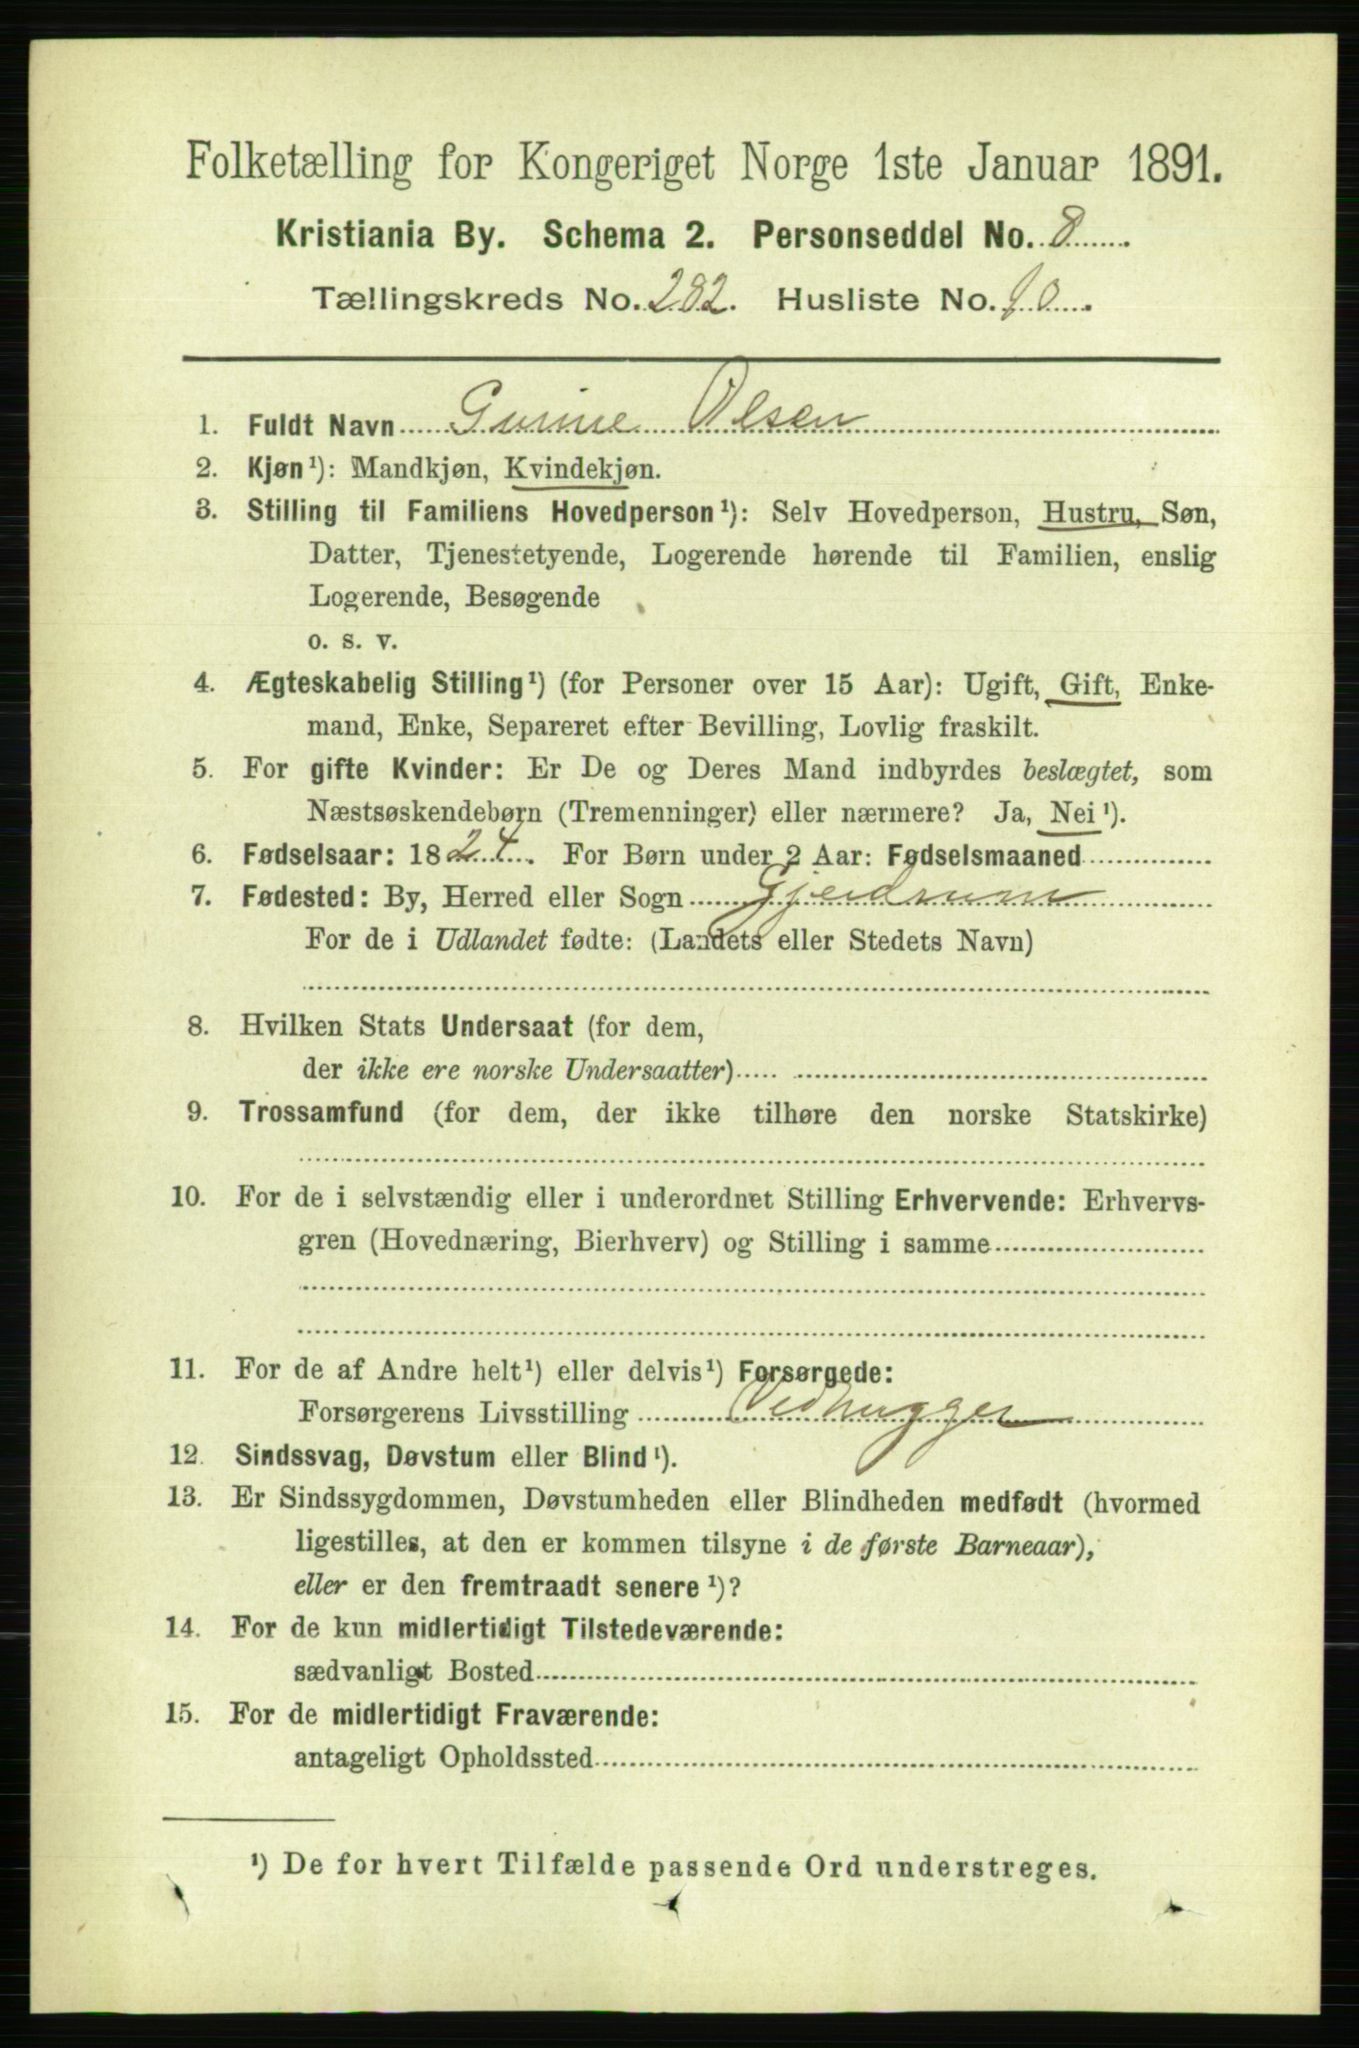 Folketælling for Kongeriget Norge 1ste Januar 1891.
Kristiania By. Schema 2. Personseddel No. 8
Tællingskreds No. 282. Husliste No. 90.
1. Fuldt Navn Gurine Olsen
2. Kjøn¹): Mandkjøn, Kvindekjøn.
3. Stilling til Familiens Hovedperson¹): Selv Hovedperson, Hustru, Søn,
Datter, Tjenestetyende, Logerende hørende til Familien, enslig
Logerende, Besøgende
o. s. v.
4. Ægteskabelig Stilling¹) (for Personer over 15 Aar): Ugift, Gift, Enke-
mand, Enke, Separeret efter Bevilling, Lovlig fraskilt.
5. For gifte Kvinder: Er De og Deres Mand indbyrdes beslægtet, som
Næstsøskendebørn (Tremenninger) eller nærmere? Ja, Nei¹).
6. Fødselsaar: 1824. For Børn under 2 Aar: Fødselsmaaned
7. Fødested: By, Herred eller Sogn Gjerdrum
For de i Udlandet fødte: (Landets eller Stedets Navn)
8. Hvilken Stats Undersaat (for dem,
der ikke ere norske Undersaatter)
9. Trossamfund (for dem, der ikke tilhøre den norske Statskirke)
10. For de i selvstændig eller i underordnet Stilling Erhvervende: Erhvervs-
gren (Hovednæring, Bierhverv) og Stilling i samme
11. For de af Andre helt¹) eller delvis¹) Forsørgede:
Forsørgerens Livsstilling Vedhugger
12. Sindssvag, Døvstum eller Blind¹).
13. Er Sindssygdommen, Døvstumheden eller Blindheden medfødt (hvormed
ligestilles, at den er kommen tilsyne i de første Barneaar),
eller er den fremtraadt senere¹)?
14. For de kun midlertidigt Tilstedeværende:
sædvanligt Bosted
15. For de midlertidigt Fraværende:
antageligt Opholdssted
¹) De for hvert Tilfælde passende Ord understreges.